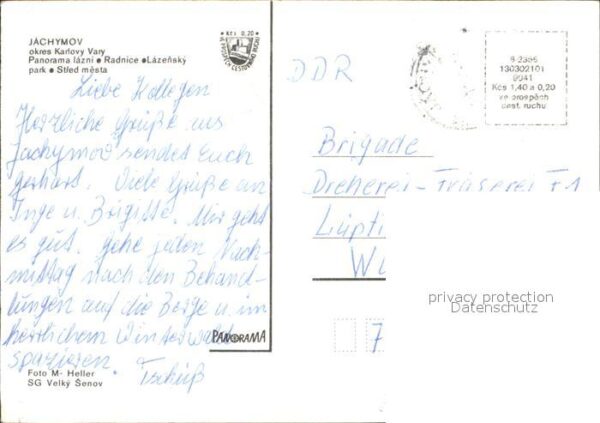 JÁCHYMOV
okres Karlovy Vary
Panorama lázní ● Radnice ● Lázeňský
park ● Střed města
Kčs 0,20
Liebe Kollegen
Herzliche Grüße aus
Jachymov sendet Euch
Gerhart. Viele Grüße an
Inge u. Brigitte. Mir geht
es gut. Gehe jeden Nach-
mittag nach den Behand-
lungen auf die Berge u. im
herrlichen Winterwald
spazieren.
Tschüß
PANORAMA
Foto M. Heller
SG Velký Šenov
DDR
130302101
Kčs 1,40 a 0,20
ve prospěch
cest. ruchu
Brigade
Dreherei-Fräserei F1
7
privacy protection
Datenschutz